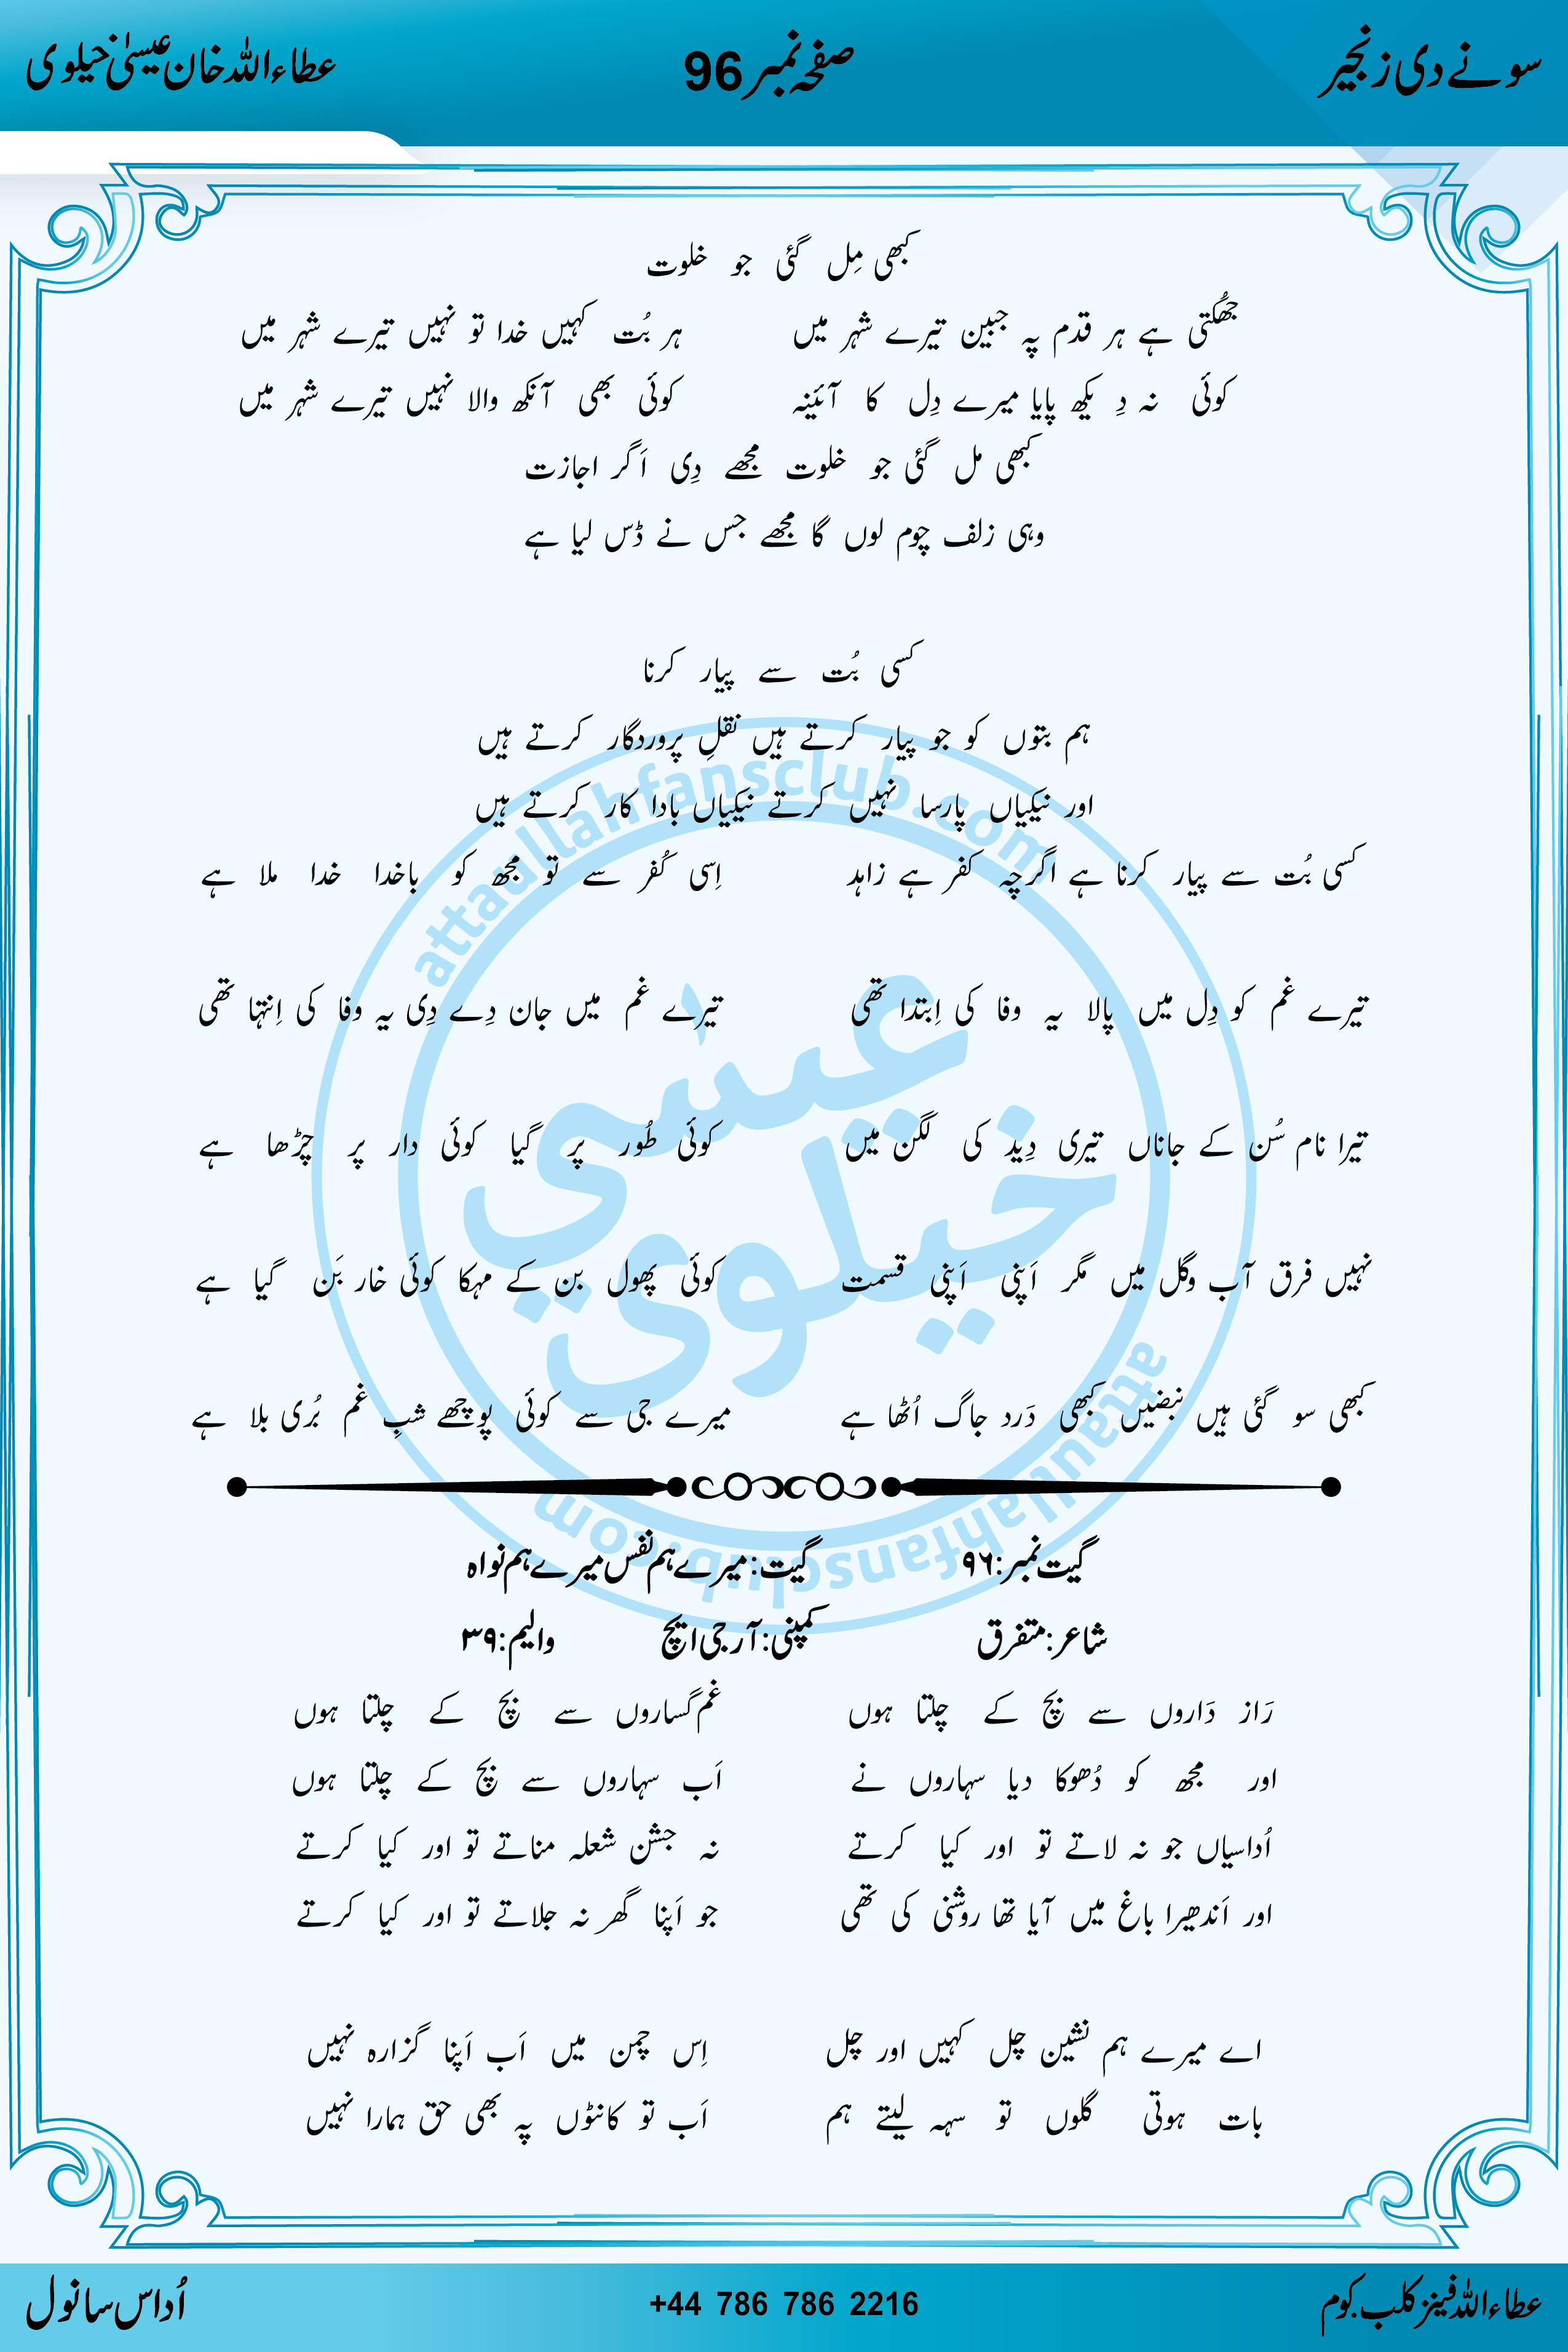 سونے دی زنجیر صفحہ نمبر 96 عطاءاللہ خان عیسیٰ خیلوی
کبھی مِل گئی جو خلوت
جھُکتی ہے ہر قدم پہ جبین تیرے شہر میں ہر بُت کہیں خدا تو نہیں تیرے شہر میں
کوئی نہ دِیکھ پایا میرے دِل کا آئینہ کوئی بھی آنکھ والا نہیں تیرے شہر میں
کبھی مل گئی جو خلوت مجھے دِی اَگر اجازت
وہی زلف چوم لوں گا مجھے جس نے ڈس لیا ہے
کسی بُت سے پیار کرنا
ہم بتوں کو جو پیار کرتے ہیں نقلِ پروردگار کرتے ہیں
اور نیکیاں پارسا نہیں کرتے نیکیاں بادا کار کرتے ہیں
کسی بُت سے پیار کرنا ہے اگرچہ کفر ہے زاہد اِسی کُفر سے تو مجھ کو باخدا خدا ملا ہے
تیرے غم کو دِل میں پالا یہ وفا کی اِبتدا تھی تیرے غم میں جان دِے دِی یہ وفا کی اِنتہا تھی
تیرا نام سُن کے جاناں تیری دِید کی لگن میں کوئی طُور پر گیا کوئی دار پر چڑھا ہے
نہیں فرق آب وگل میں مگر اَپنی اَپنی قسمت کوئی پھول بن کے مہکا کوئی خار بَن گیا ہے
کبھی سو گئی ہیں نبضیں کبھی دَرد جاگ اُٹھا ہے میرے جی سے کوئی پوچھے شبِ غم بُری بلا ہے
گیت نمبر:۹۶ گیت: میرے ہم نفس میرے ہم نواہ
شاعر: متفرق کمپنی: آر جی ایچ والیم: ۳۹
رَاز دَاروں سے بچ کے چلتا ہوں غم گساروں سے بچ کے چلتا ہوں
اور مجھ کو دُھوکا دیا سہاروں نے اَب سہاروں سے بچ کے چلتا ہوں
اُداسیاں جو نہ لاتے تو اور کیا کرتے نہ جشن شعلہ مناتے تو اور کیا کرتے
اور اَندھیرا باغ میں آیا تھا روشنی کی تھی جو اَپنا گھر نہ جلاتے تو اور کیا کرتے
اے میرے ہم نشین چل کہیں اور چل اِس چمن میں اَب اَپنا گزارہ نہیں
بات ہوتی گلوں تو سہہ لیتے ہم اَب تو کانٹوں پہ بھی حق ہمارا نہیں
attaullahfansclub.com
عیسٰی خیلوی
attaullahfansclub.com
عطاءاللہ فینز کلب.کوم +44 786 786 2216 اُداس سانول